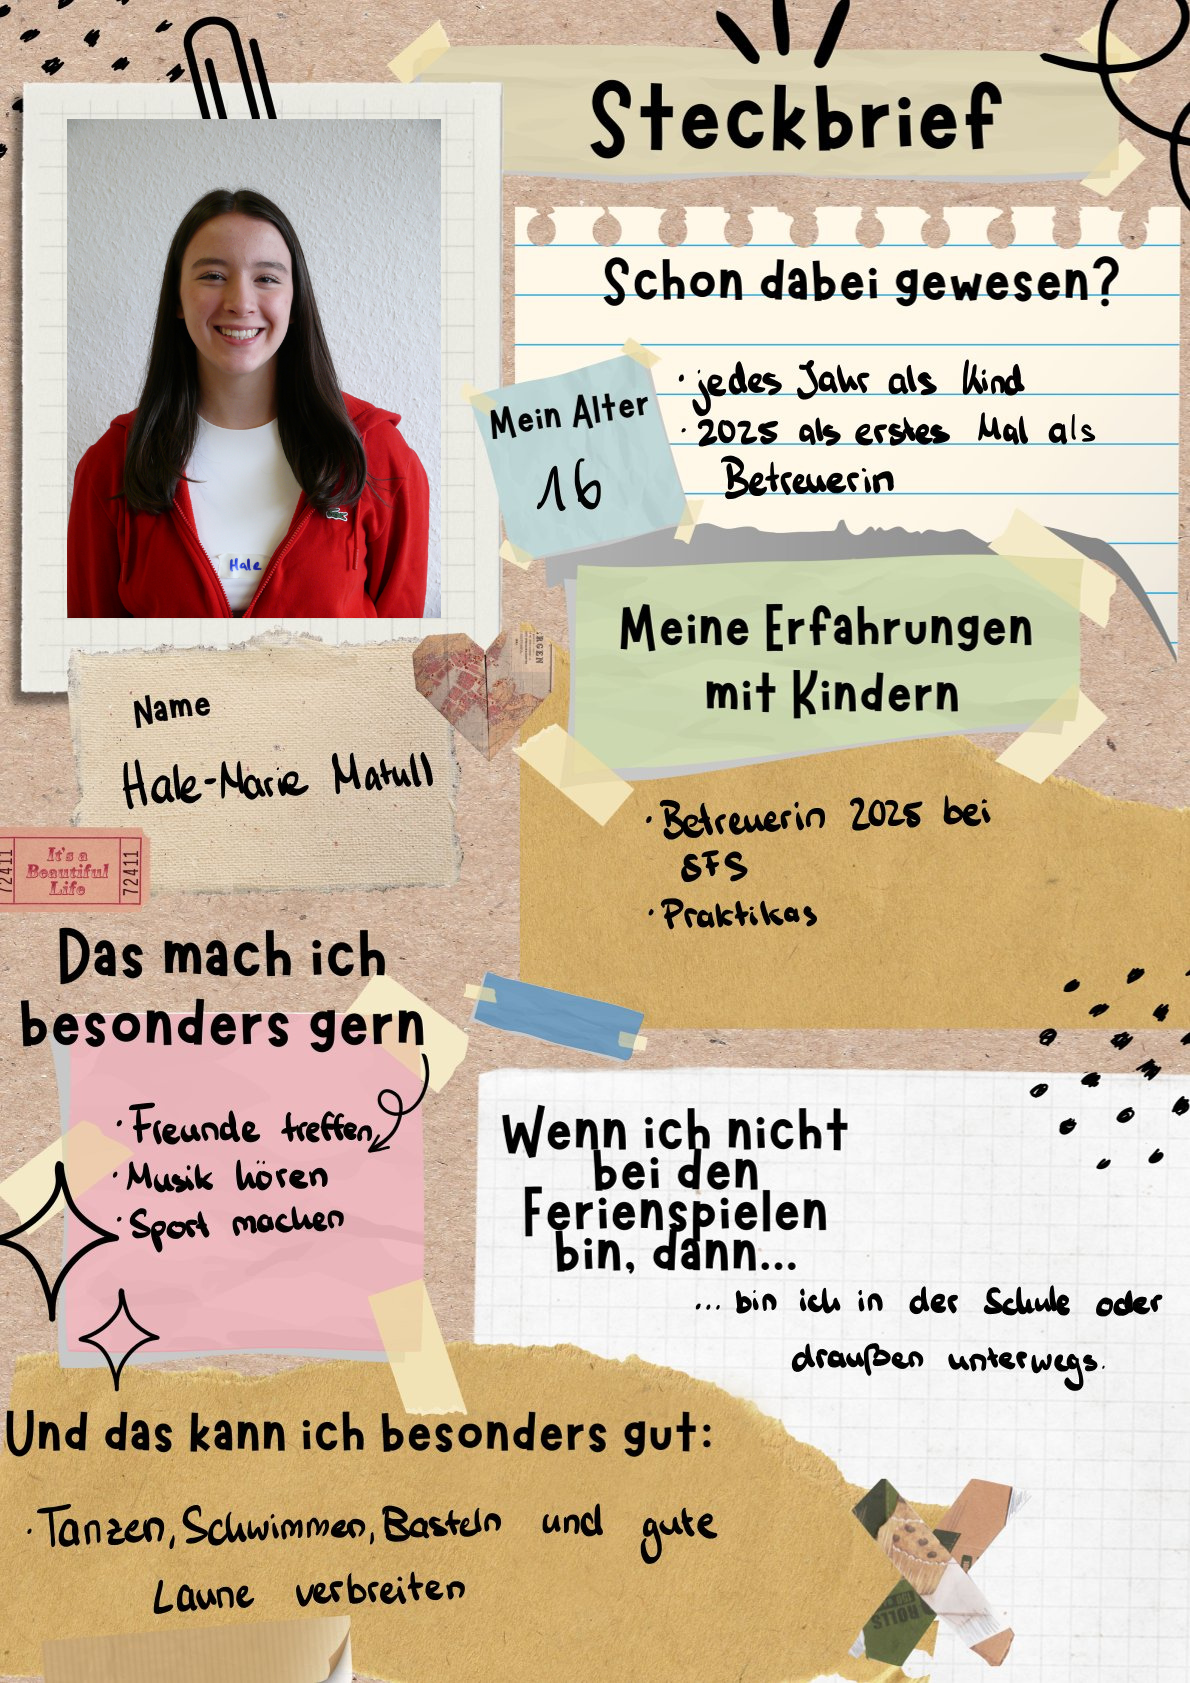 Steckbrief
Schon dabei gewesen?
· jedes Jahr als Kind
· 2025 als erstes Mal als
Betreuerin
Mein Alter
16
Hale
Meine Erfahrungen
mit Kindern
· Betreuerin 2025 bei
SFS
· Praktikas
Name
Hale-Marie Matull
RGEN
72411
It's a
Beautiful
Life
72411
Das mach ich
besonders gern
· Freunde treffen
· Musik hören
· Sport machen
Wenn ich nicht
bei den
Ferienspielen
bin, dann...
... bin ich in der Schule oder
draußen unterwegs.
Und das kann ich besonders gut:
· Tanzen, Schwimmen, Basteln und gute
Laune verbreiten
ROLLS